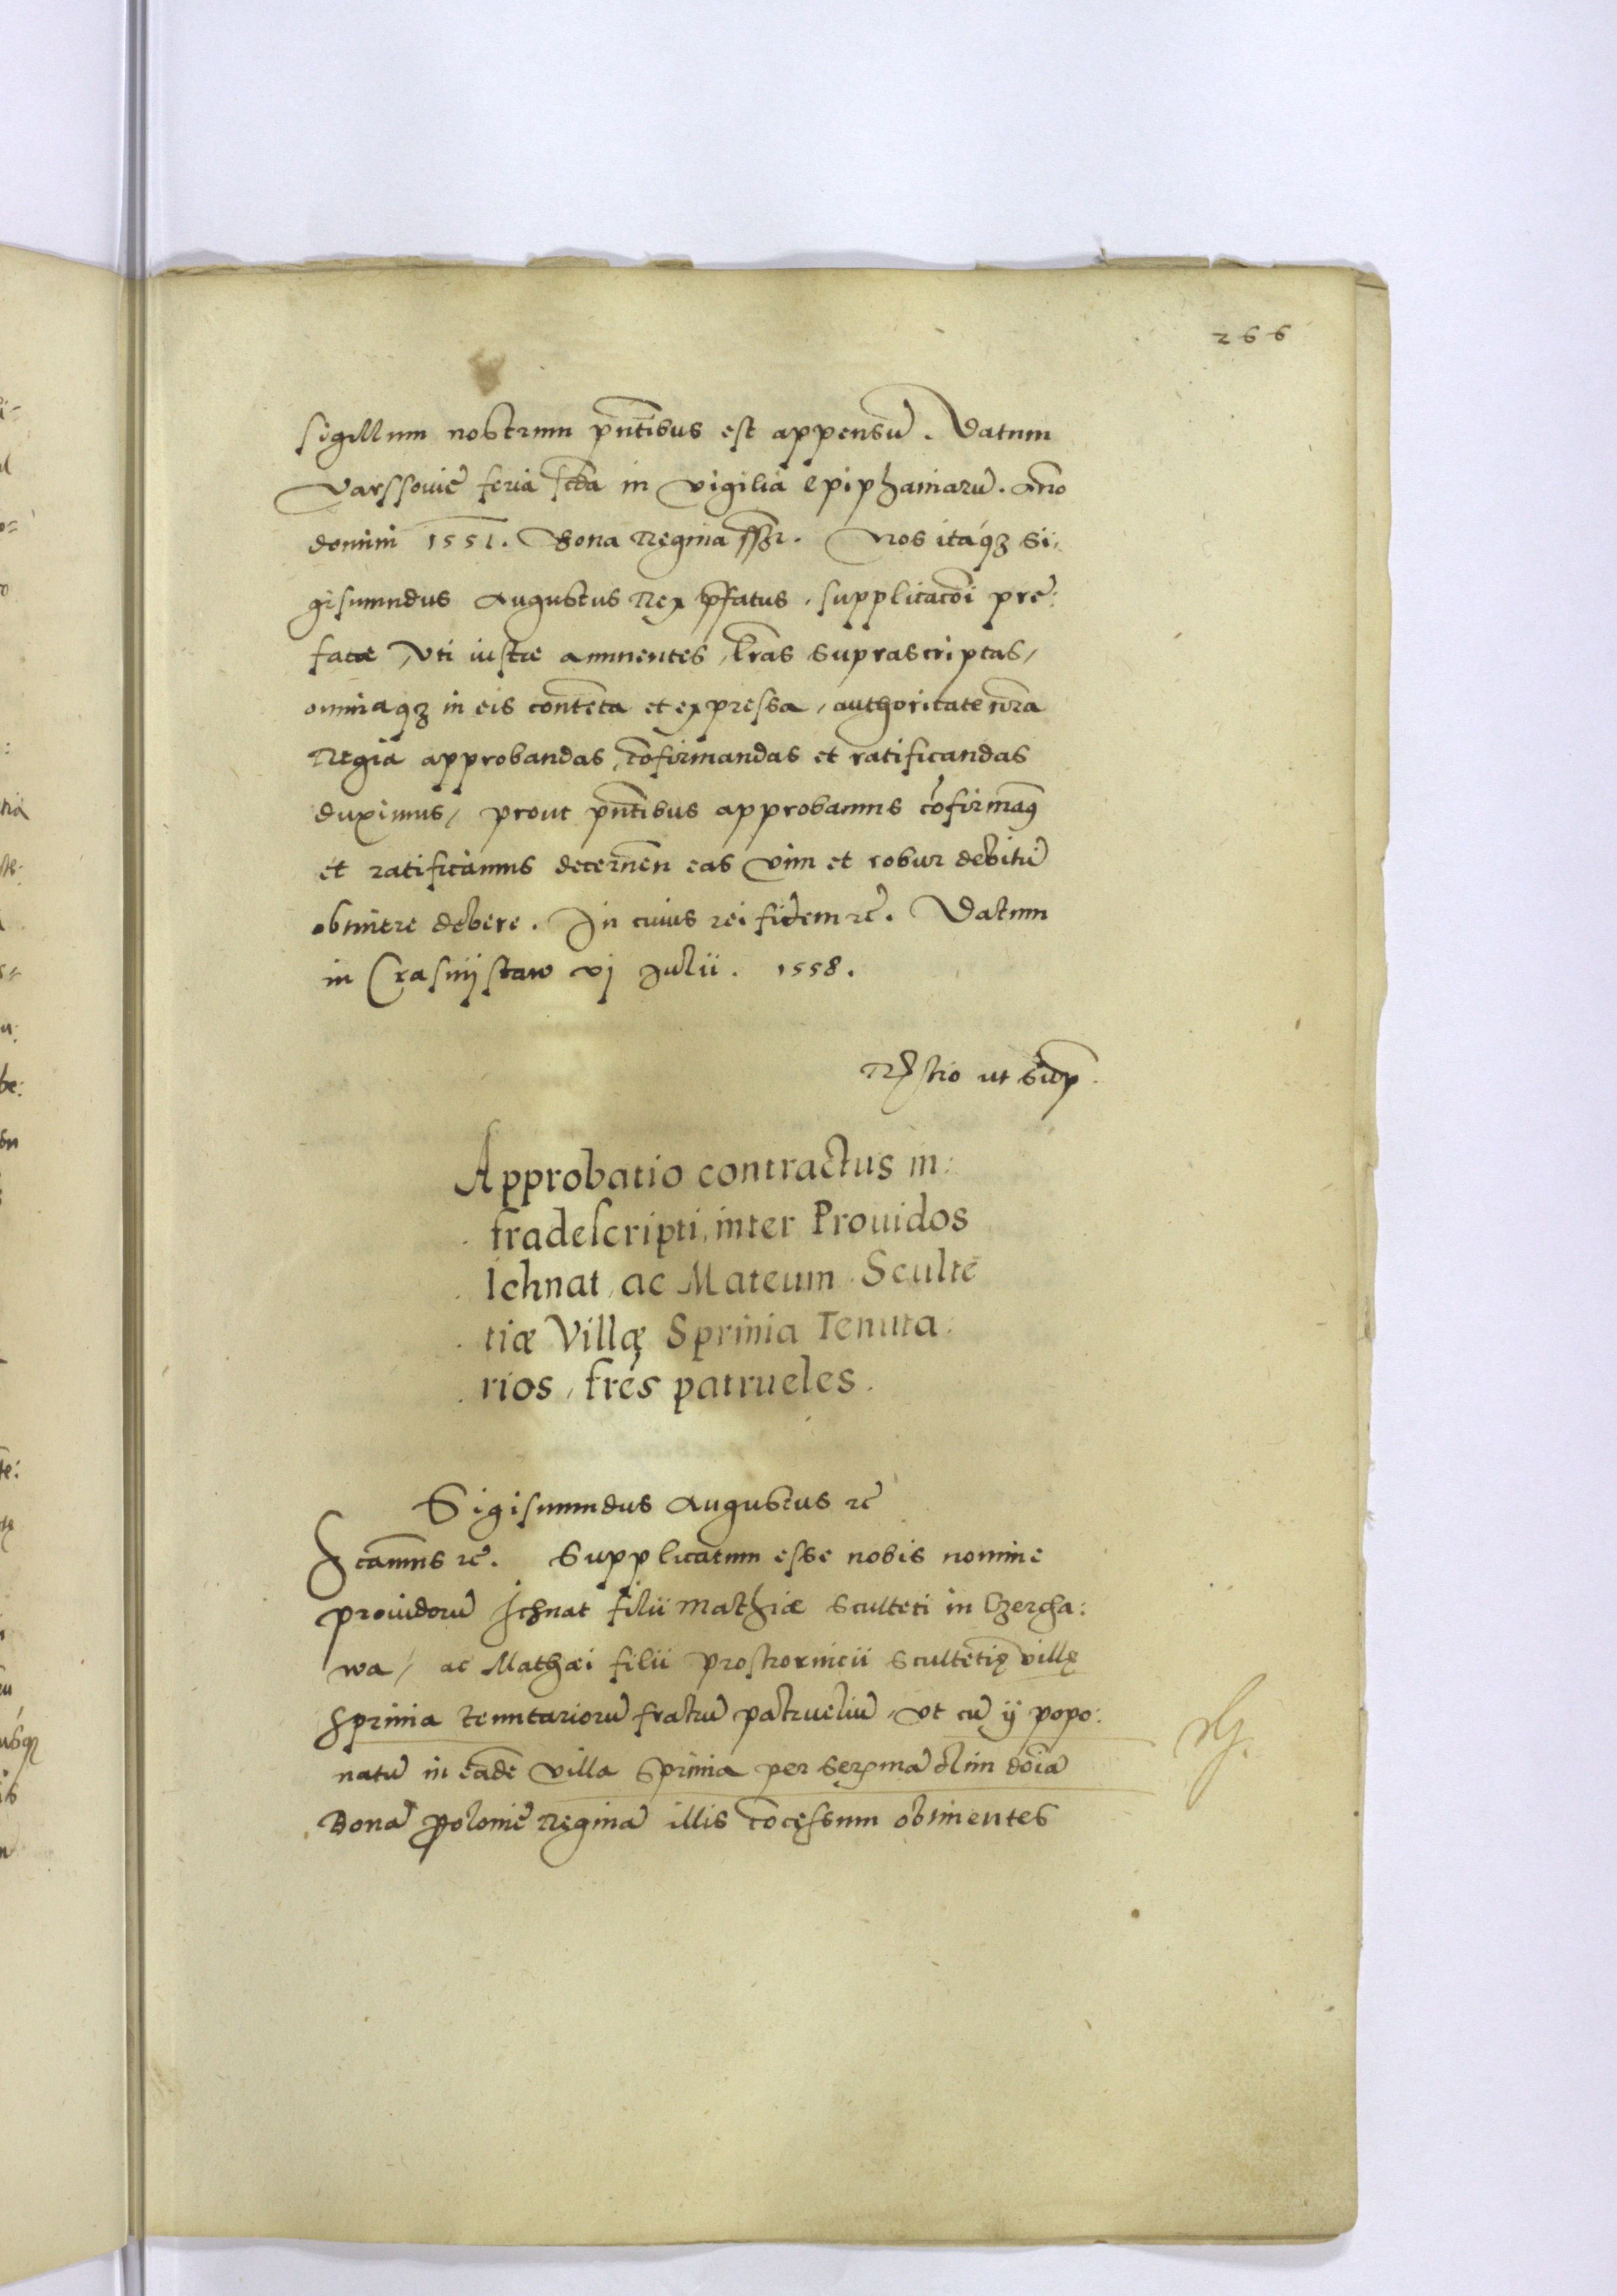 266
sigillum nostrum pñtibus est appensũ. Datum
Varssouie feria scda in vigilia epiphaniarũ. Anno
domini 1551. Bona Regina sszt. Nos itaqʒ Si:
gismundus Augustus Rex pfatus, supplicacõi pre:
fatæ, vti iustæ annuentes, lras suprascriptas,
omniaqʒ in eis contẽta et expressa, authoritate nrã
Regia approbandas, cõfirmandas et ratificandas
duximus, prout pñtibus approbamus cõfirmaq
et ratificamus decernẽn eas vim et robur debitũ
obtinere debere. In cuius rei fidem rc̃. Datum
in Crasnijstaw vj Julii. 1558.
Rstio ut sup
Approbatio contractus in:
fradescripti, inter Prouidos
Ichnat, ac Mateum Scultẽ
tiæ Villę Sprinia Tenuta:
rios, frẽs patrueles.
Sigismundus Augustus rc̃
Scamus rc̃. Supplicatum esse nobis nomine
prouidorũ Ichnat filii Mathiæ Sculteti in Czercha:
wa, ac Mathæi filii prochownicii Scultetię villę
Sprinia tenutariorũ fratrũ patrueliũ, vt cũ ij popo:
natũ in eãdẽ villa Sprinia per Serẽmã olim dõiã
Bonã Polonie Reginã illis cõcęssum obtinentes